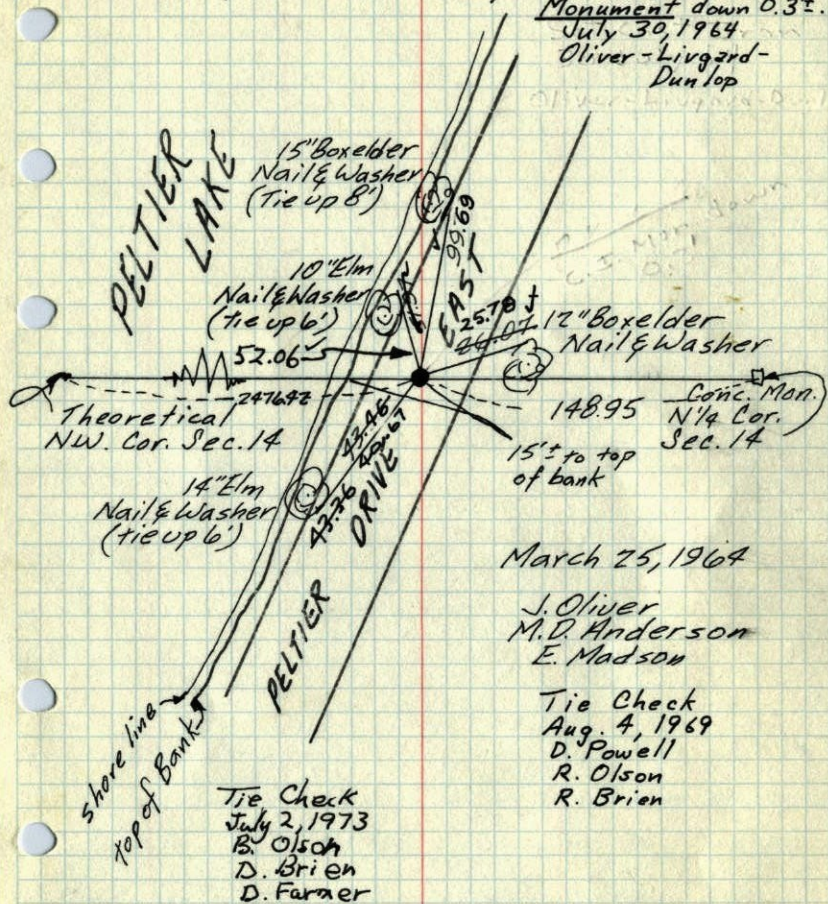 Monument down 0.3±.
July 30, 1964
Oliver - Livgard -
Dunlop
PELTIER
LAKE
15" Boxelder
Nail & Washer
(Tie up 8')
99.69
10" Elm
Nail & Washer
(tie up 6')
EAST
25.78
26.07
12" Boxelder
Nail & Washer
52.06
2476.42
Theoretical
N.W. Cor. Sec. 14
148.95
Conc. Mon.
N¼ Cor.
Sec. 14
15'± to top
of bank
43.46
43.36
14" Elm
Nail & Washer
(tie up 6')
PELTIER DRIVE
shore line
top of Bank
March 25, 1964
J. Oliver
M.D. Anderson
E. Madson
Tie Check
Aug. 4, 1969
D. Powell
R. Olson
R. Brien
Tie Check
July 2, 1973
B. Olson
D. Brien
D. Farmer